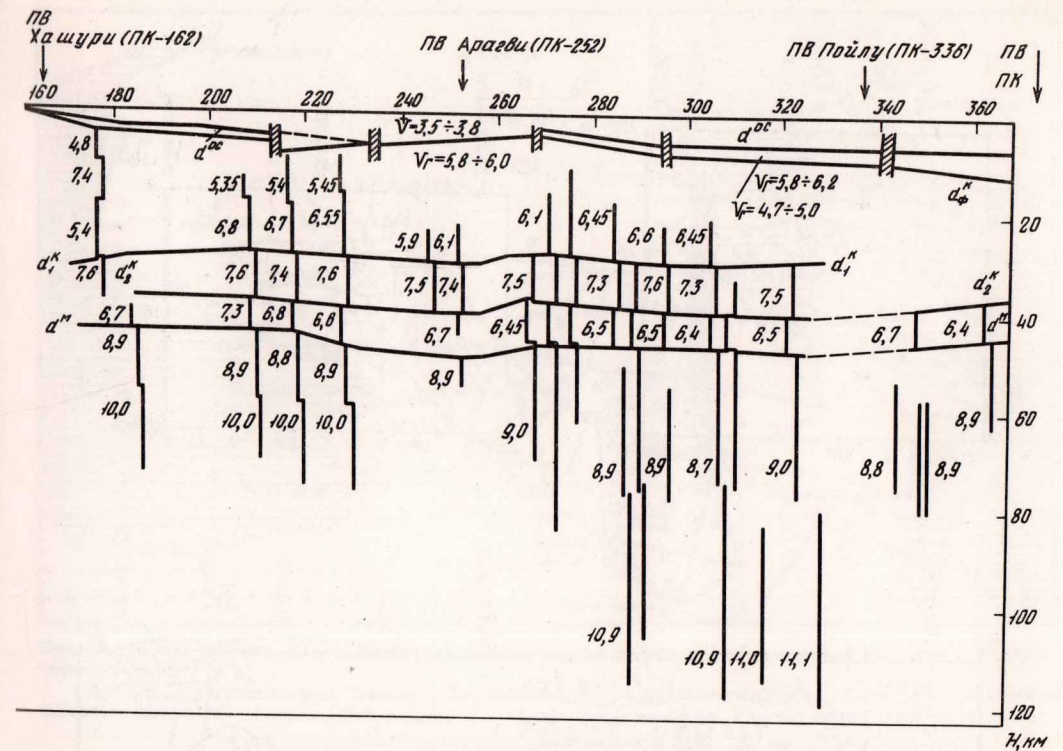 ПВ
Хашури (ПК-162)
ПВ Арагви (ПК-252)
ПВ Пойлу (ПК-336)
ПВ
ПК
160 180 200 220 240 260 280 300 320 340 360
d ос
V=3,5÷3,8
Vг=5,8÷6,0
d ос
Vг=5,8÷6,2
Vг=4,7÷5,0
d ф к
4,8
7,4
5,4
5,35
6,8
5,4
6,7
5,45
6,55
5,9
6,1
6,1
6,45
6,6
6,45
20
d 1 к
7,6
d 2 к
7,6
7,4
7,6
7,5
7,4
7,5
7,3
7,6
7,3
7,5
d 1 к
d 2 к
d м
6,7
7,3
6,8
6,8
6,7
6,45
6,5
6,5
6,4
6,5
6,7
6,4
d м
40
8,9
8,9
8,8
8,9
8,9
10,0
10,0
10,0
10,0
9,0
8,9
8,9
8,7
9,0
8,8
8,9
8,9
60
80
10,9
10,9
11,0
11,1
100
120
H, км